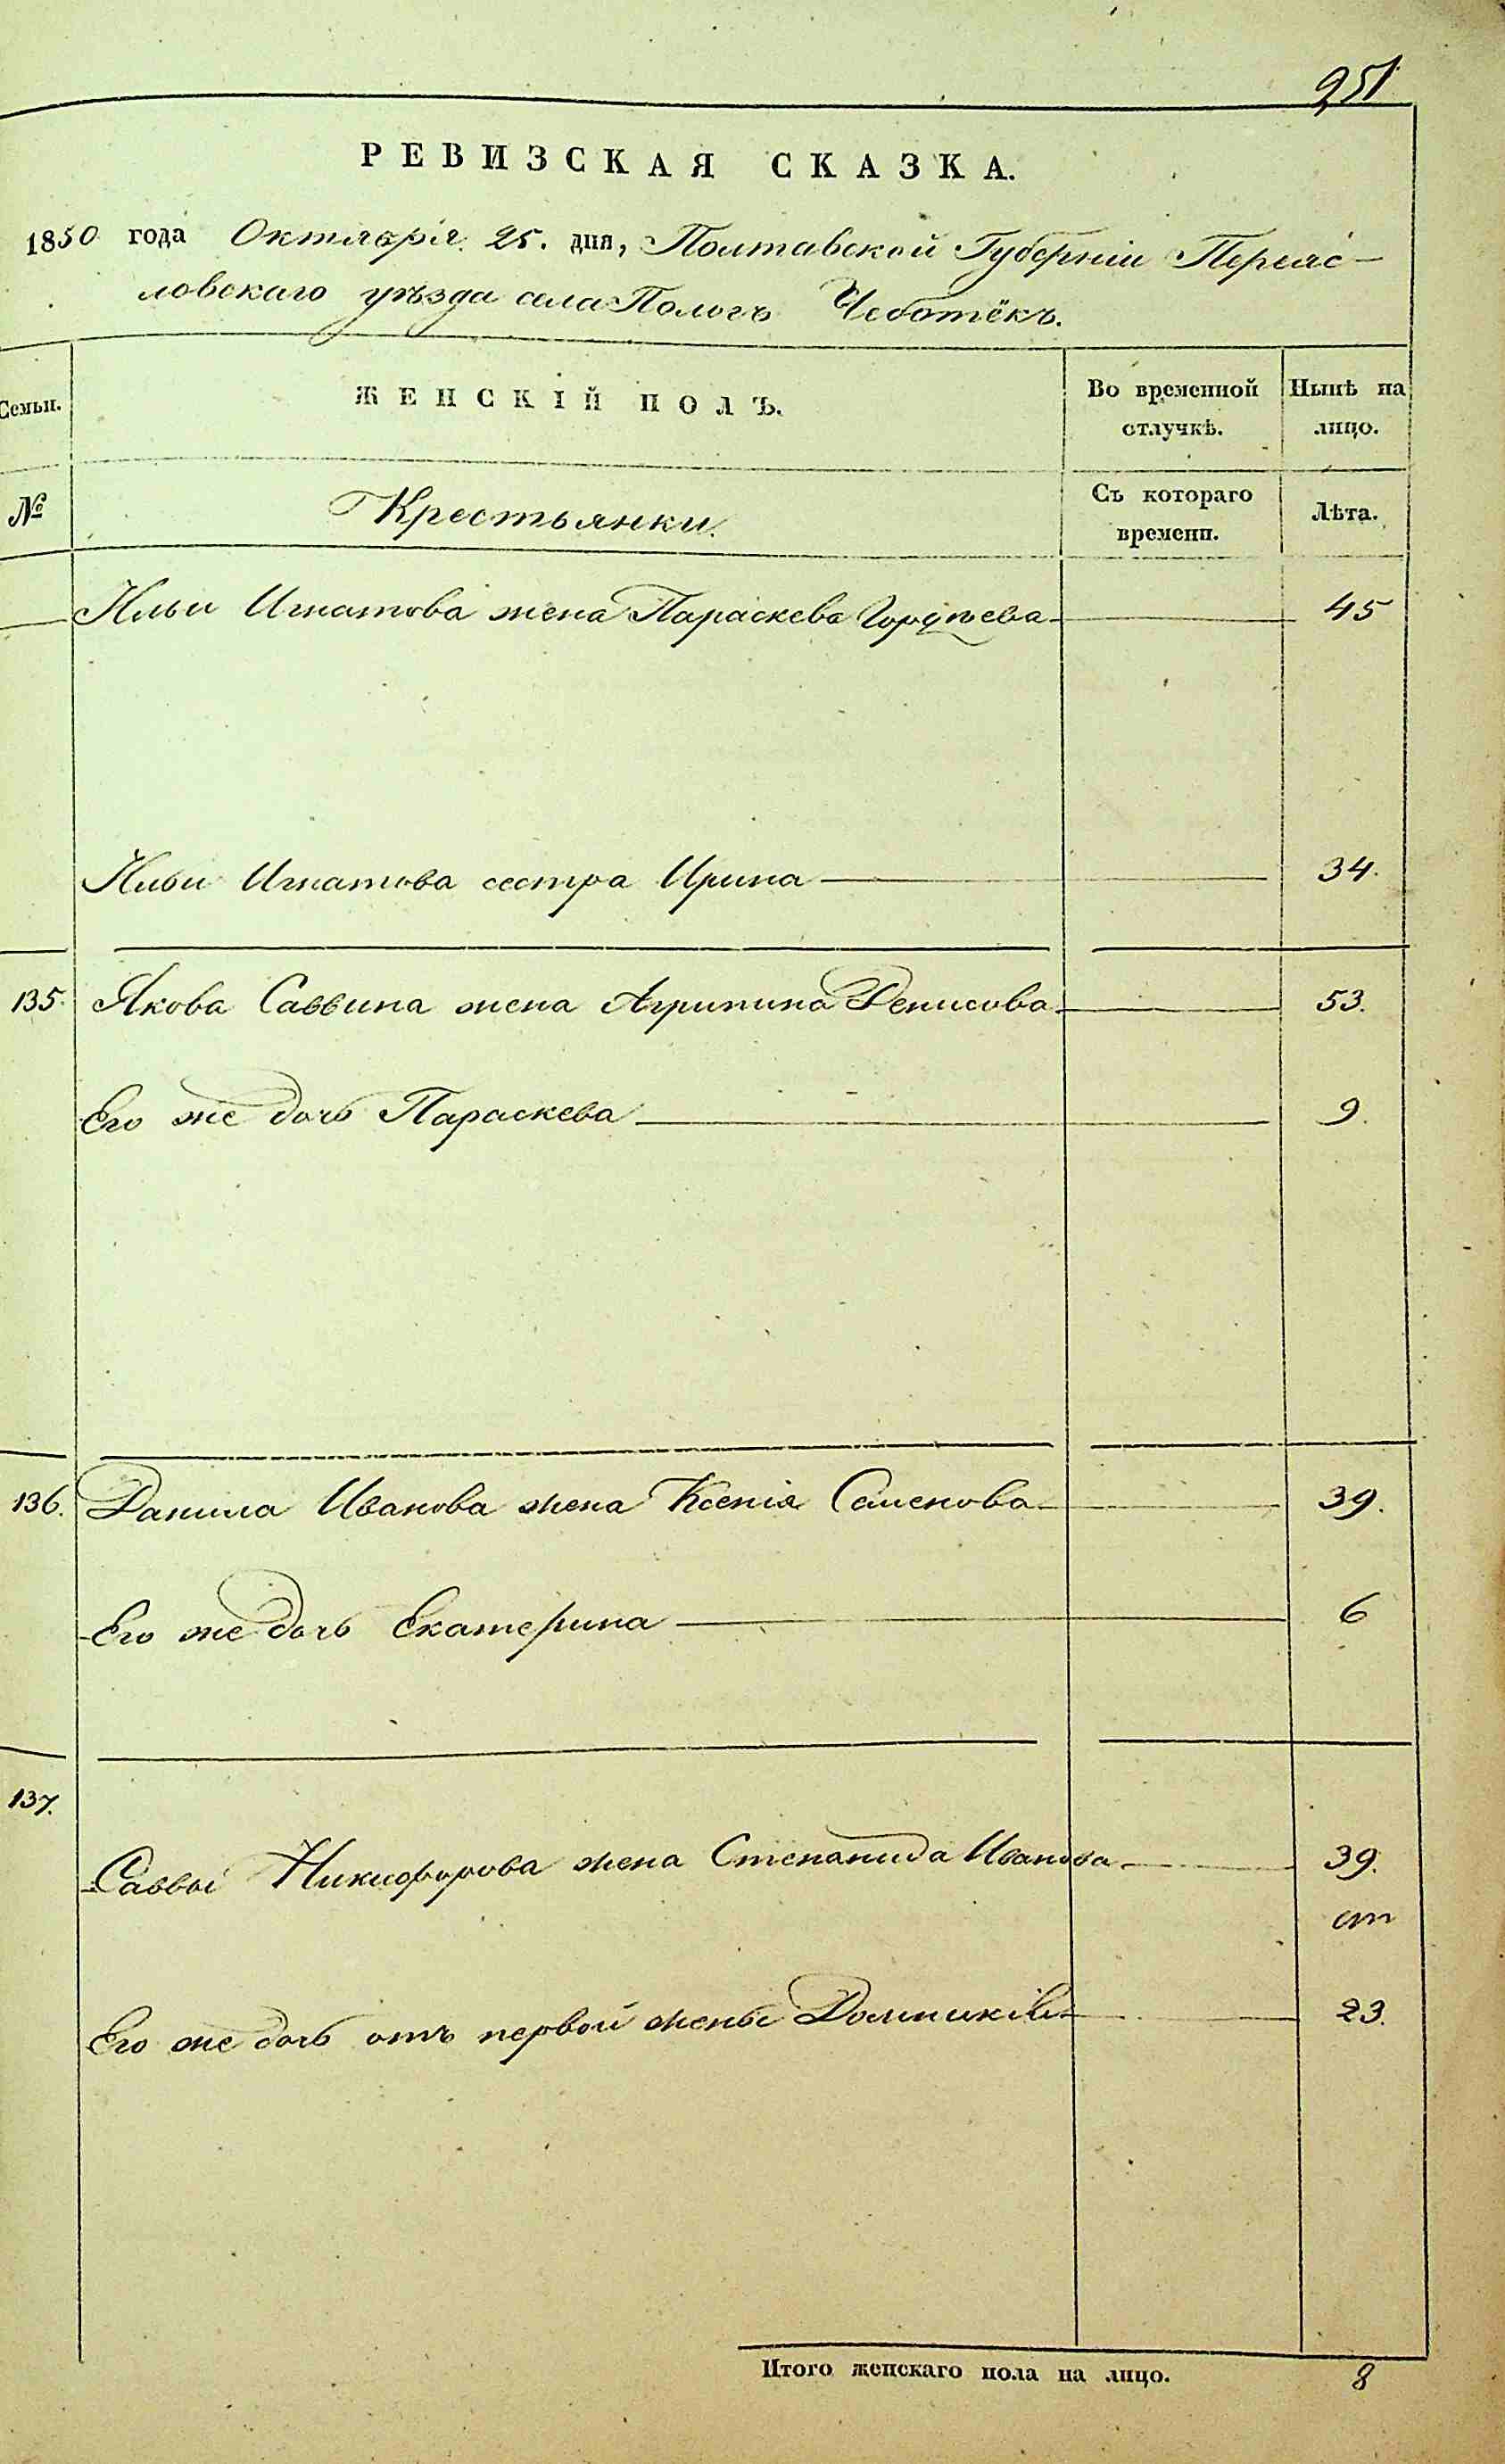 251
РЕВИЗСКАЯ СКАЗКА.
1850 года Октября 25. дня, Полтавской Губерніи Переяс-
ловскаго уѣзда села Пологъ Чеботёкъ.
Семьи. ЖЕНСКІЙ ПОЛЪ. Во временной отлучкѣ. Нынѣ на лицо.
№ Крестьянки. Съ котораго времени. Лѣта.
Ильи Игнатова жена Параскева 45
Ильи Игнатова сестра Ирина 34.
135. Якова Саввина жена Агрипина Денисова 53.
Его же дочь Параскева 9.
136. Данила Иванова жена Ксенія Семенова 39.
Его же дочь Екатерина 6
137.
Саввы Никифорова жена Степанида Иванова 39.
Его же дочь отъ первой жены Домникія 23.
Итого женскаго пола на лицо. 8